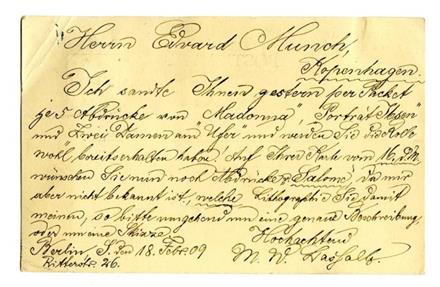 Herrn Edvard Munch,
Kopenhagen.
Ich sandte Ihnen gestern per Packet
je 5 Abdrücke von "Madonna", "Porträt Ibsen"
und "Zwei Damen am Ufer" und werden Sie die Rolle
wohl bereits erhalten haben. Auf Ihrer Karte vom 16. d. M.
wünschen Sie nun noch Abdrücke v. "Salome", da mir
aber nicht bekannt ist, welche Lithographie Sie damit
meinen, so bitte umgehend um eine genaue Beschreibung,
oder um eine Skizze.
Hochachtend
Berlin, S. den 18. Febr. 09
Ritterstr. 26.
M. W. Lassally.